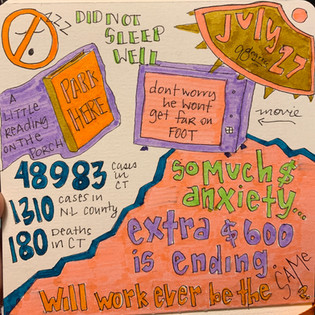 zzzz
DID NOT
SLEEP
WELL
July 27
A
LITTLE
READING
ON THE
PORCH
PARK
HERE
dont worry
he wont
get far on
FOOT
movie
48983 cases
in CT
1310 cases in
NL county
180 Deaths
in CT
SO MUCH $
anxiety...
extra $600
is ending
Will work ever be the SAME